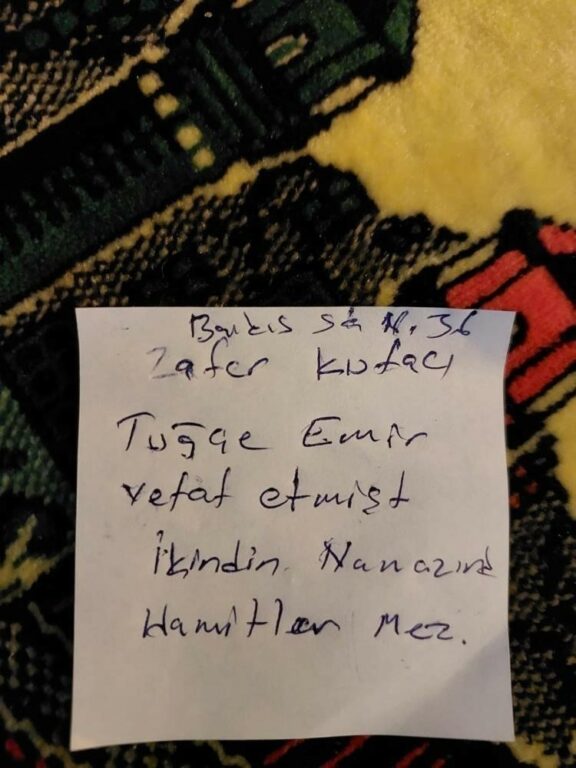 Barkıs sk N. 36
Zafer kıraçı
Tuğçe Emir
vefat etmişt
İkindin Namazınd
Hamitler Mez.